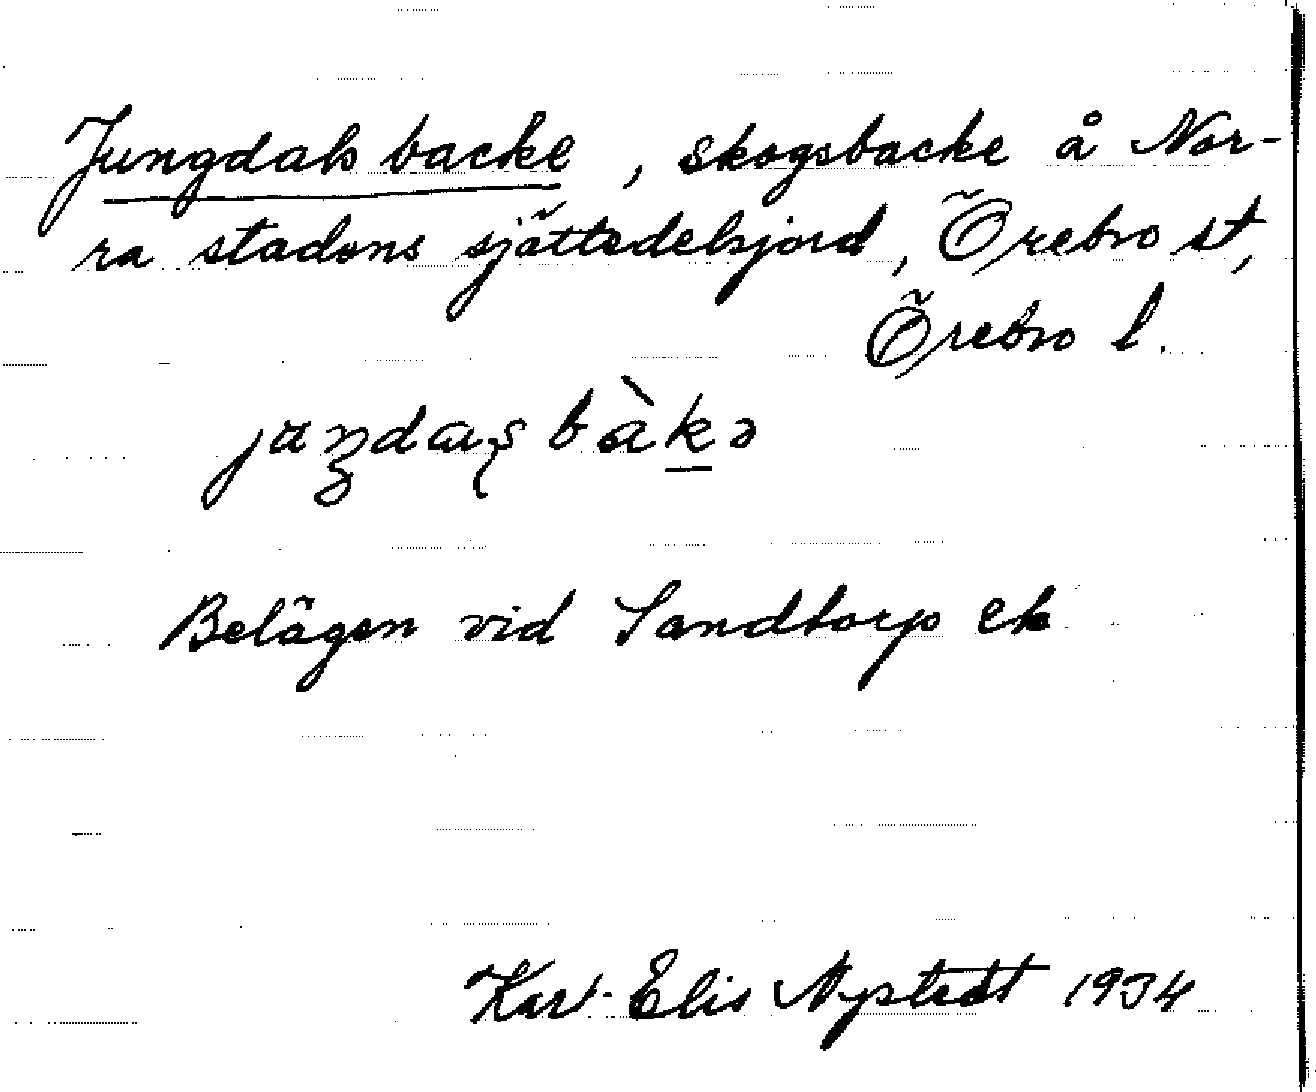 Jungdals backe, skogsbacke å Nor-
ra stadens sjättedelsjord, Örebro st,
Örebro l.
bàkə
Belägen vid Sandtorp ek
Karl-Elis Nystedt 1934